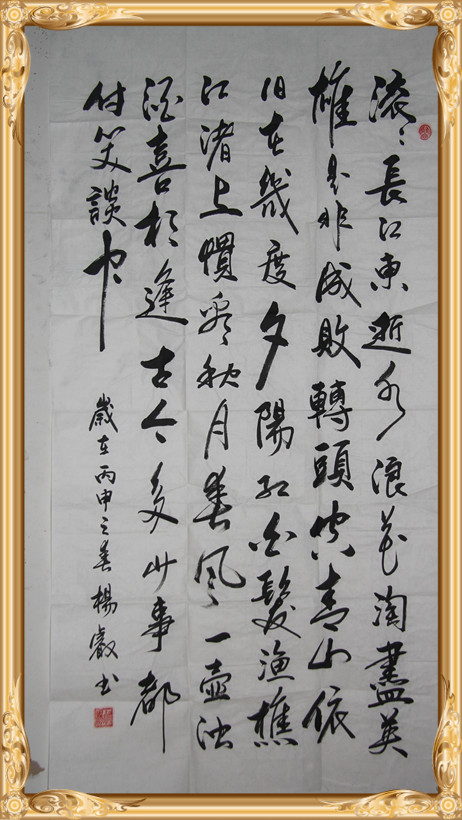 滚〻長江東逝水浪花淘盡英
雄是非成敗轉頭空青山依
旧在幾度夕陽红白髮渔樵
江渚上慣看秋月春风一壶浊
酒喜相逢古今多少事都
付笑談中
歲在丙申之春楊叡书